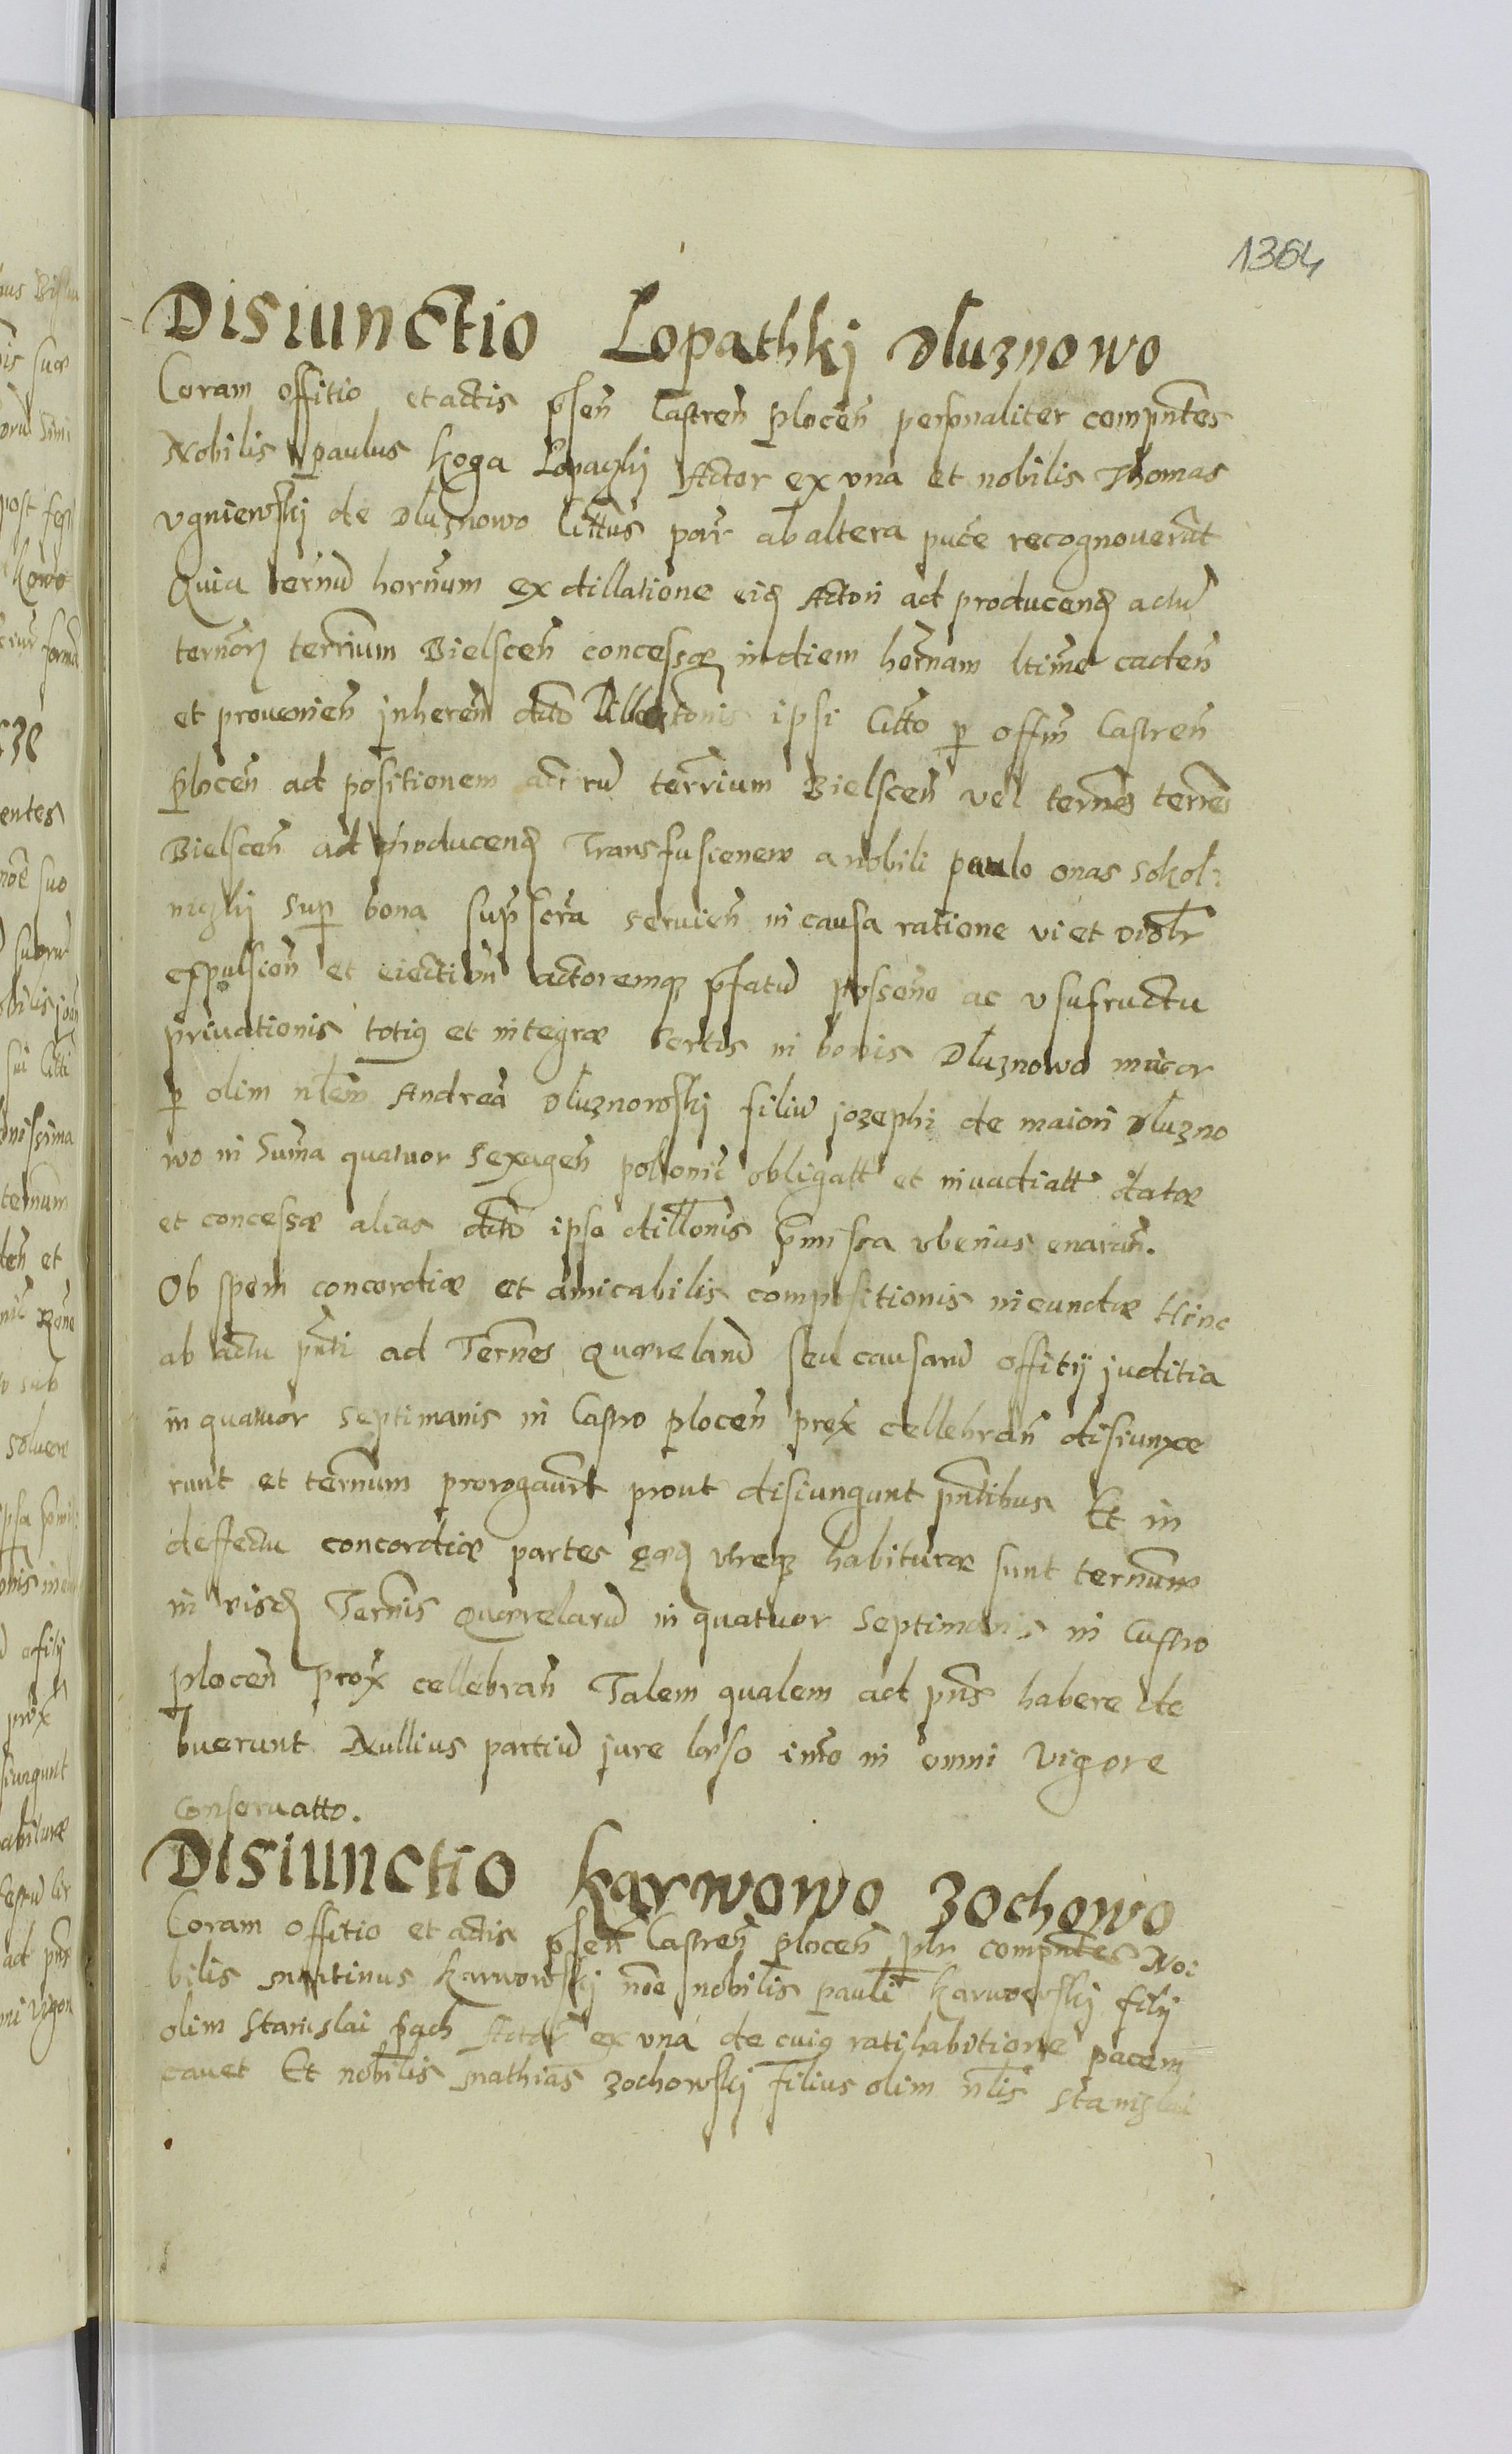 1364
Disiunctio Lopathkj Dluznowo
Coram offitio et actis psen Castren plocen personaliter compntes
Nobilis paulus Koga Lopaczkj Actor ex vna et nobilis Thomas
vgniewskj de Dluznowo Cittus par ab altera puce recognouerut
Quia ternu hornum ex dillatione eid Actori ad producend actu
ternor terrium Bielscen concessae in diem hornam ltime caden
et prouenien jnheren dicto ipsi Citto p offm Castren
plocen ad positionem terrium Bielscen vel ternos terres
Bielscen ad producend Transfusionem a nobili paulo onas sokol:
niczkj Sup bona supscra seruien in causa ratione vi et violr
expulsion et eiection actoremq pfatu possene ac vsufructu
priuationis totig et integrae Sortis in bonis Dluznowo minor
p olim nlem Andrea Dluznowskj filiu jozephi de maiori Dluzno
wo in Suma quatuor sexagen polonic obligatt et inuadiatt datae
et concessae alias dicto ipso dillonis pmissa vberius enarran.
Ob spem concordiae et amicabilis compositionis ineundae Hinc
ab actu pnti ad Ternos Quaerelaru seu causaru offitij juditia
in quatuor Septimanis in Castro plocen prox cellebran disiunxe
runt et ternum prorogaurt prout disiungunt pntibus Et in
deffectu concordiae partes eaed vtreq habiturae sunt ternum
in eisd Ternis Quaerelaru in quatuor Septimanis in Castro
plocen prox cellebran Talem qualem ad pns habere de
buerunt Nullius partiu jure laeso imo in omni vigore
conseruatto.
Disiunctio Karwowo Zochowo
Coram offitio et actis psen Castren plocen plr compntes No:
bilis martinus Karwowskj noe nobilis pauli Karwowskj filij
olim Stanislai Actor ex vna de cuig ratihabitione pacem
cauet Et nobilis mathias Zochowskj Filius olim nlis Stanislai